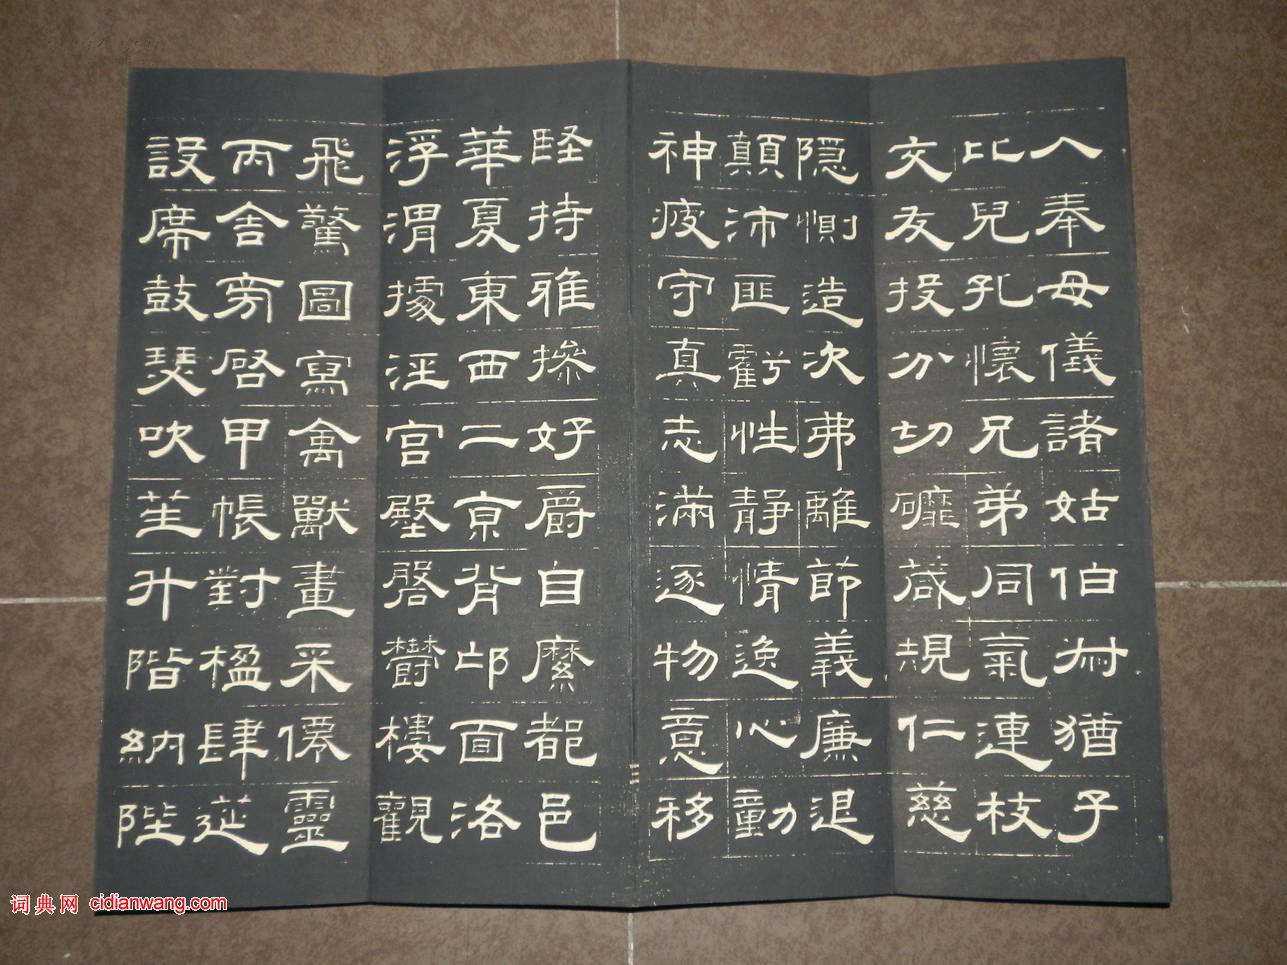 入奉母儀諸姑伯叔猶子
比兒孔懷兄弟同氣連枝
交友投分切磨箴規仁慈
隱惻造次弗離節義廉退
顛沛匪虧性靜情逸心動
神疲守真志滿逐物意移
堅持雅操好爵自縻都邑
華夏東西二京背邙面洛
浮渭據涇宮殿盤鬱樓觀
飛驚圖寫禽獸畫采僊靈
丙舍旁啓甲帳對楹肆筵
設席鼓瑟吹笙升階納陛
词典网 cidianwang.com